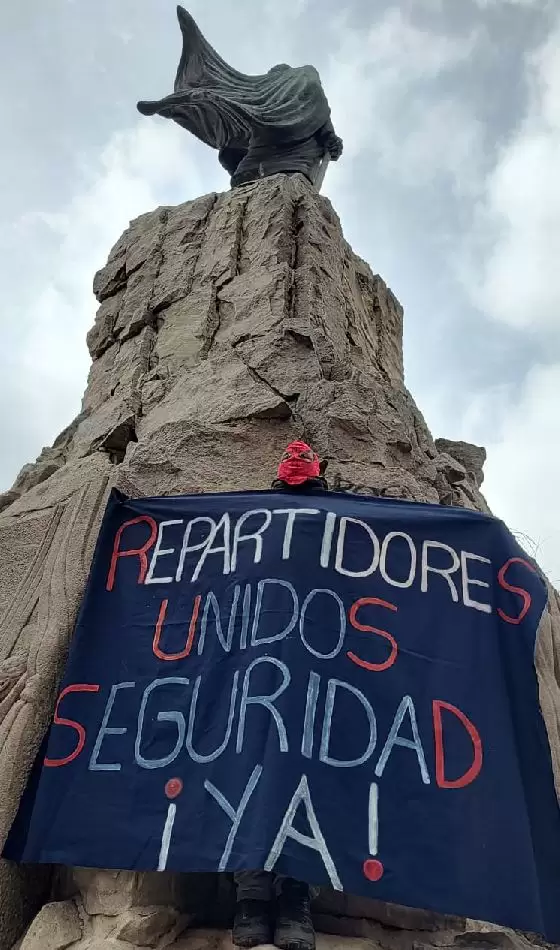 REPARTIDORES
UNIDOS
SEGURIDAD
¡YA!